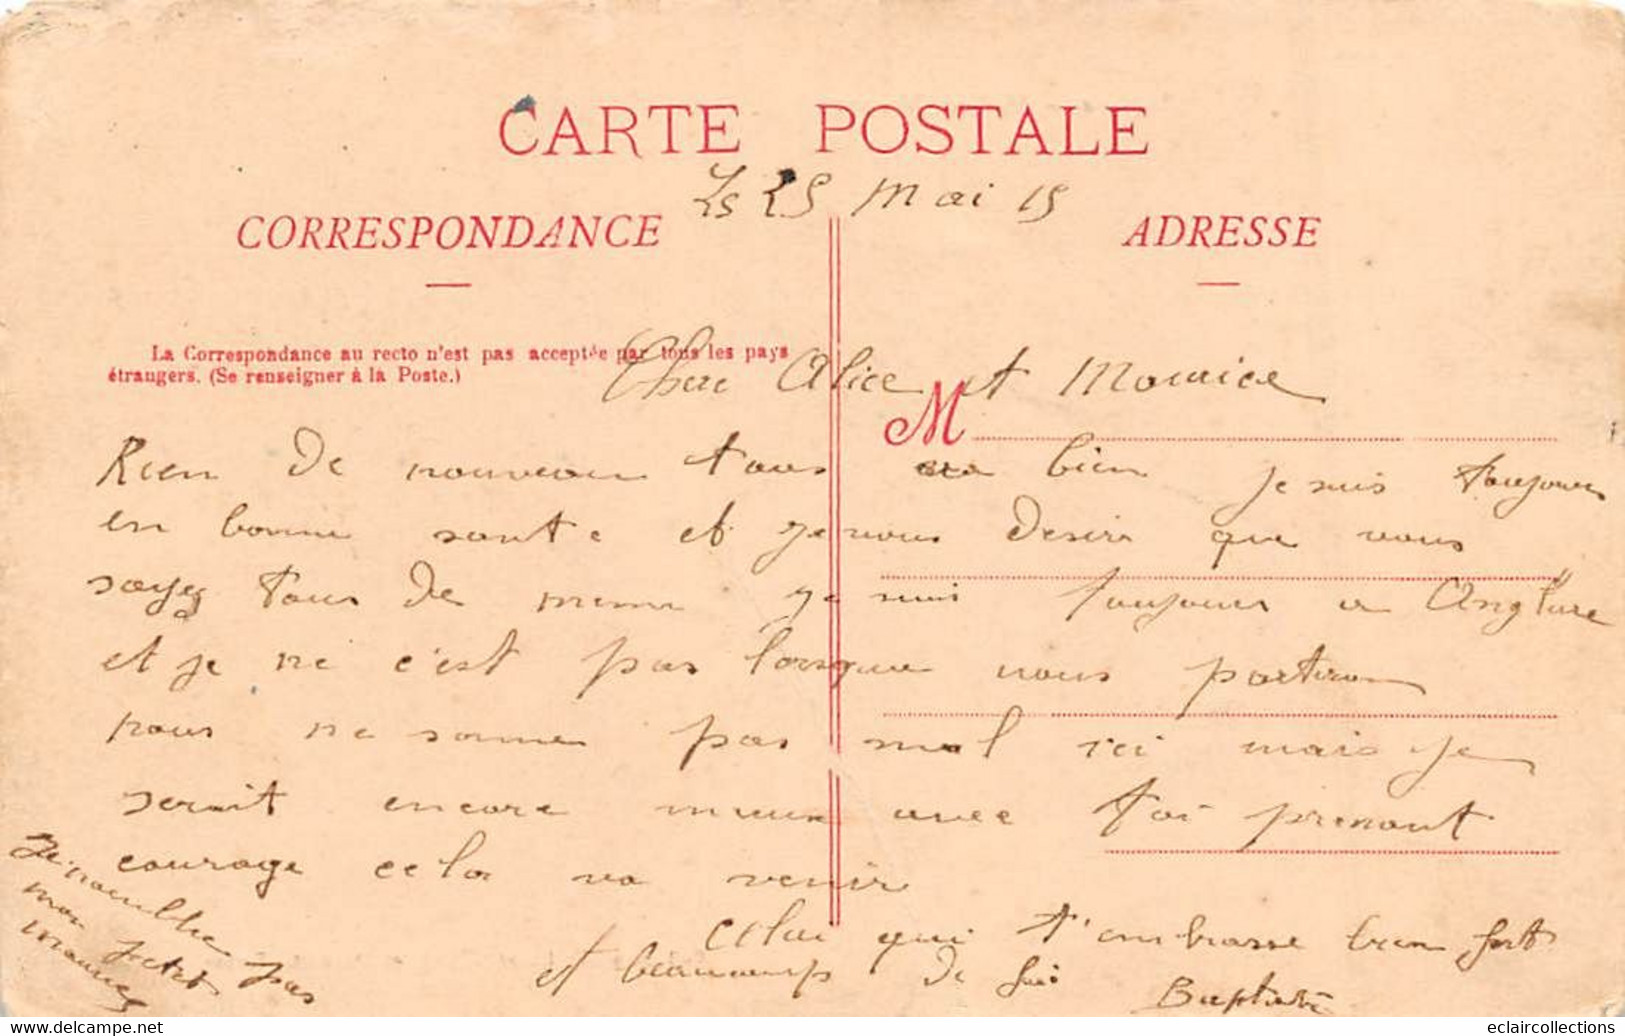 CARTE POSTALE
Le 25 Mai 15
CORRESPONDANCE
ADRESSE
La Correspondance au recto n'est pas acceptée par tous les pays
étrangers. (Se renseigner à la Poste.)
Chere Alice et Maurice
M
Rien de nouveau tous va bien je suis toujours
en bonne sante et je vous desir que vous
soyez tous de meme je suis toujour a Anglure
et je ne c'est pas lorsque nous partiron
nous ne somme pas mal ici mais je
serait encore mieux avec toi prenont
courage cela va venir
Celui qui t'embrasse bien fort
et beaucoup de fois
Baptiste
Je n'oublie pas
mon petit
Maurice
eclaircollections | delcampe.net